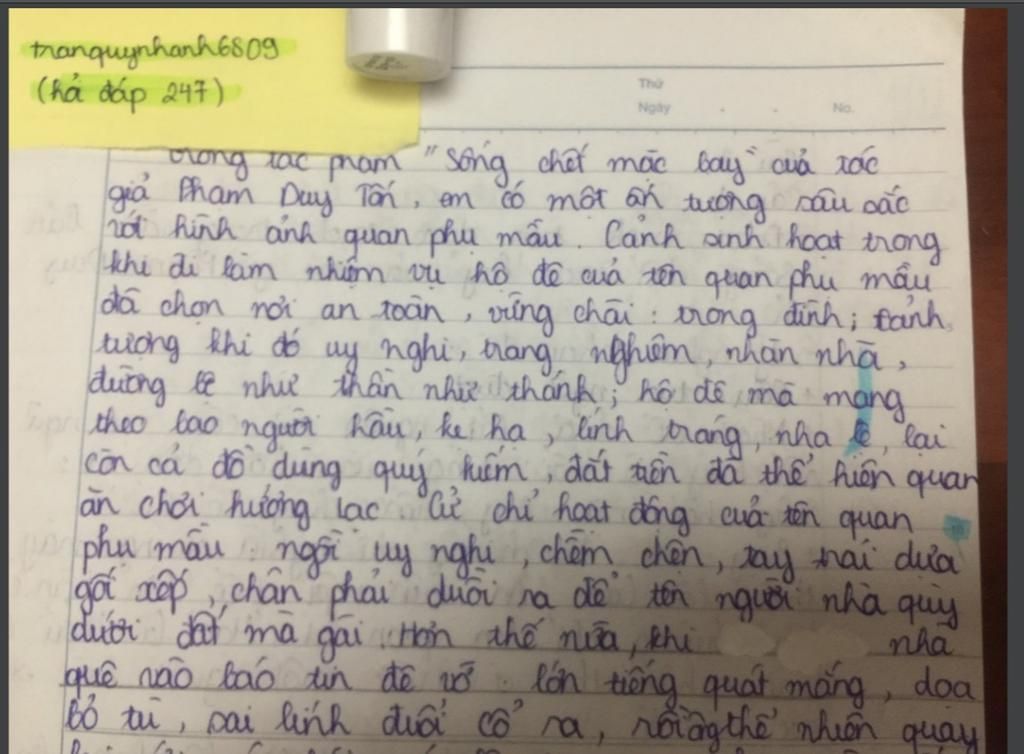 tranquynhanh6809
(hả đáp 247)
Thứ
Ngày . . No.
trong tác phẩm "Sống chết mặc bay" của tác
giả Phạm Duy Tốn, em có một ấn tượng sâu sắc
với hình ảnh quan phụ mẫu. Cảnh sinh hoạt trong
khi đi làm nhiệm vụ hộ đê của tên quan phụ mẫu
đã chọn nơi an toàn, vững chãi: trong đình; cảnh
tượng khi đó uy nghi, trang nghiêm, nhàn nhã,
đường bệ như thần như thánh; hộ đê mà mang
theo bao người hầu, kẻ hạ, lính tráng, nha lệ, lại
còn cả đồ dùng quý hiếm, đắt tiền đã thể hiện quan
ăn chơi hưởng lạc. Cử chỉ hoạt động của tên quan
phụ mẫu: ngồi uy nghi, chễm chện, tay trái dựa
gối xếp, chân phải duỗi ra để tên người nhà quỳ
dưới đất mà gãi. Hơn thế nữa, khi nhà
quê vào báo tin đê vỡ lớn tiếng quát mắng, dọa
bỏ tù, sai lính đuổi cổ ra, rồi thể nhiên quay